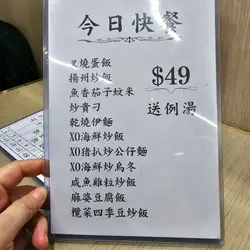 今日快餐
叉燒蛋飯
揚州炒飯
魚香茄子蚊米
炒貴刁
乾燒伊麵
XO海鮮炒飯
XO豬扒炒公仔麵
XO海鮮炒烏冬
咸魚雞粒炒飯
麻婆豆腐飯
欖菜四季豆炒飯
$49
送例湯